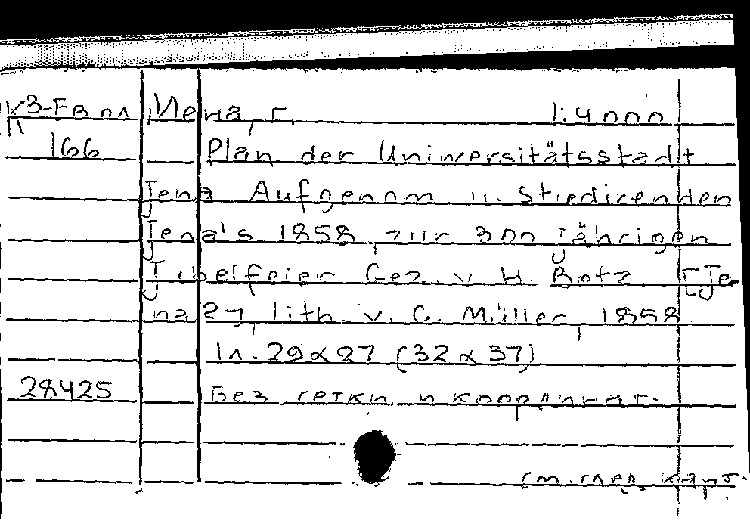 К3-Герм Иена, г. 1:4000
166 Plan der Universitätsstadt
Jena Aufgenom u. Studirenden
Jena's 1858, zur 300 jährigen
Jubelfeier Gez. v. H. Botz [Je
na?], lith. v. C. Müller, 1858
1л. 29x27 (32x37)
28425 Без сетки и координат.
см. след. карт.